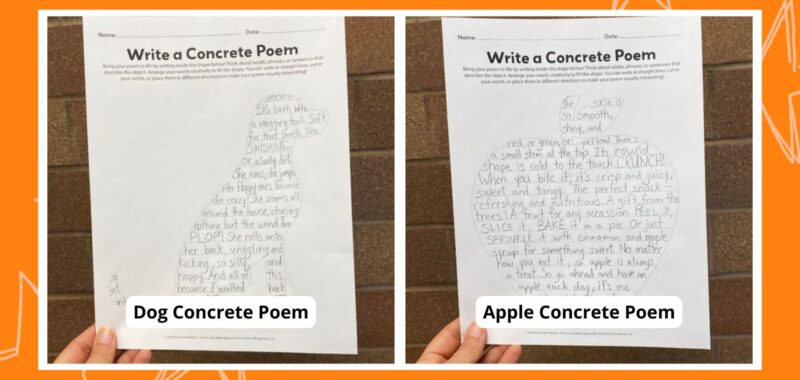 Name: Date:
Write a Concrete Poem
Bring your poem to life by writing inside the shape below! Think about words, phrases, or sentences that
describe the object. Arrange your words creatively to fill the shape. You can write in straight lines, curve
your words, or place them in different directions to make your poem visually interesting!
WOOF!
BIG bark with
a wagging tail. Soft
fur that smells like
SUNSHINE
Or, actually dirt.
She runs, she jumps
Her floppy ears bounce
like crazy! She zooms all
around the house, chasing
nothing but the wind. Then
PLOP! She rolls onto
her back, wiggling and
kicking, so silly, and
happy. And all of this
because I walked back
Dog Concrete Poem
Name: Date:
Write a Concrete Poem
Bring your poem to life by writing inside the shape below! Think about words, phrases, or sentences that
describe the object. Arrange your words creatively to fill the shape. You can write in straight lines, curve
your words, or place them in different directions to make your poem visually interesting!
The SKIN is
so smooth,
shiny, and
red, or green, or yellow. There's
a small stem at the top. Its round
shape is cold to the touch. CRUNCH!
When you bite it, it's crisp and juicy,
sweet and tangy. The perfect snack -
refreshing and nutritious. A gift from the
trees! A fruit for any occassion. PEEL it,
SLICE it, BAKE it in a pie. Or just
SPRINKLE it with cinnamon and maple
syrup for something sweet. No matter
how you eat it, an apple is always
a treat. So go ahead and have an
apple each day, it's one
Apple Concrete Poem